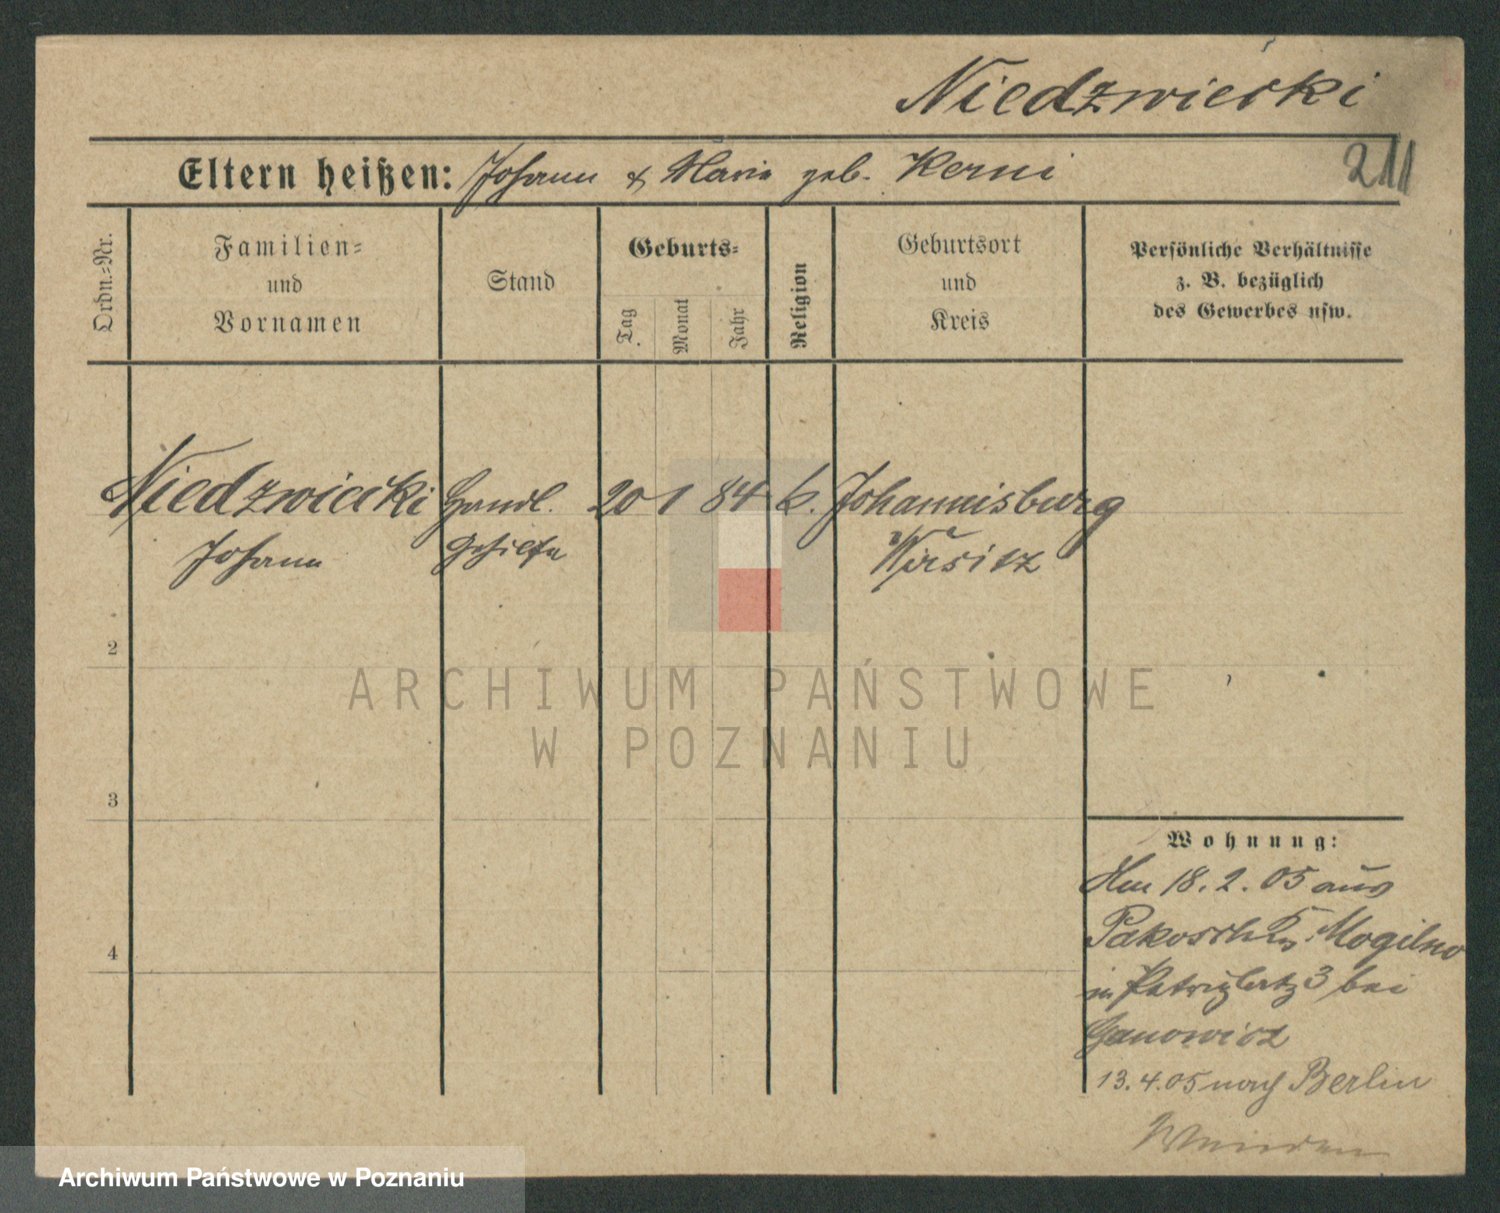 Niedzwiecki
Eltern heißen: Johann & Maria geb. Kerni
211
Ordn.=Nr.
Familien=
und
Vornamen
Stand
Geburts=
Tag
Monat
Jahr
Religion
Geburtsort
und
Kreis
Persönliche Verhältnisse
z. B. bezüglich
des Gewerbes usw.
Niedzwiecki Handl. 20 1 84 k. Johannisburg
Johann Gehilfe Wirsitz
2
3
4
Wohnung:
Am 18. 2. 05 aus
Pakosch Mogilno
in 3 bei
Ganowicz
13. 4. 05 nach Berlin
ARCHIWUM PAŃSTWOWE
W POZNANIU
Archiwum Państwowe w Poznaniu